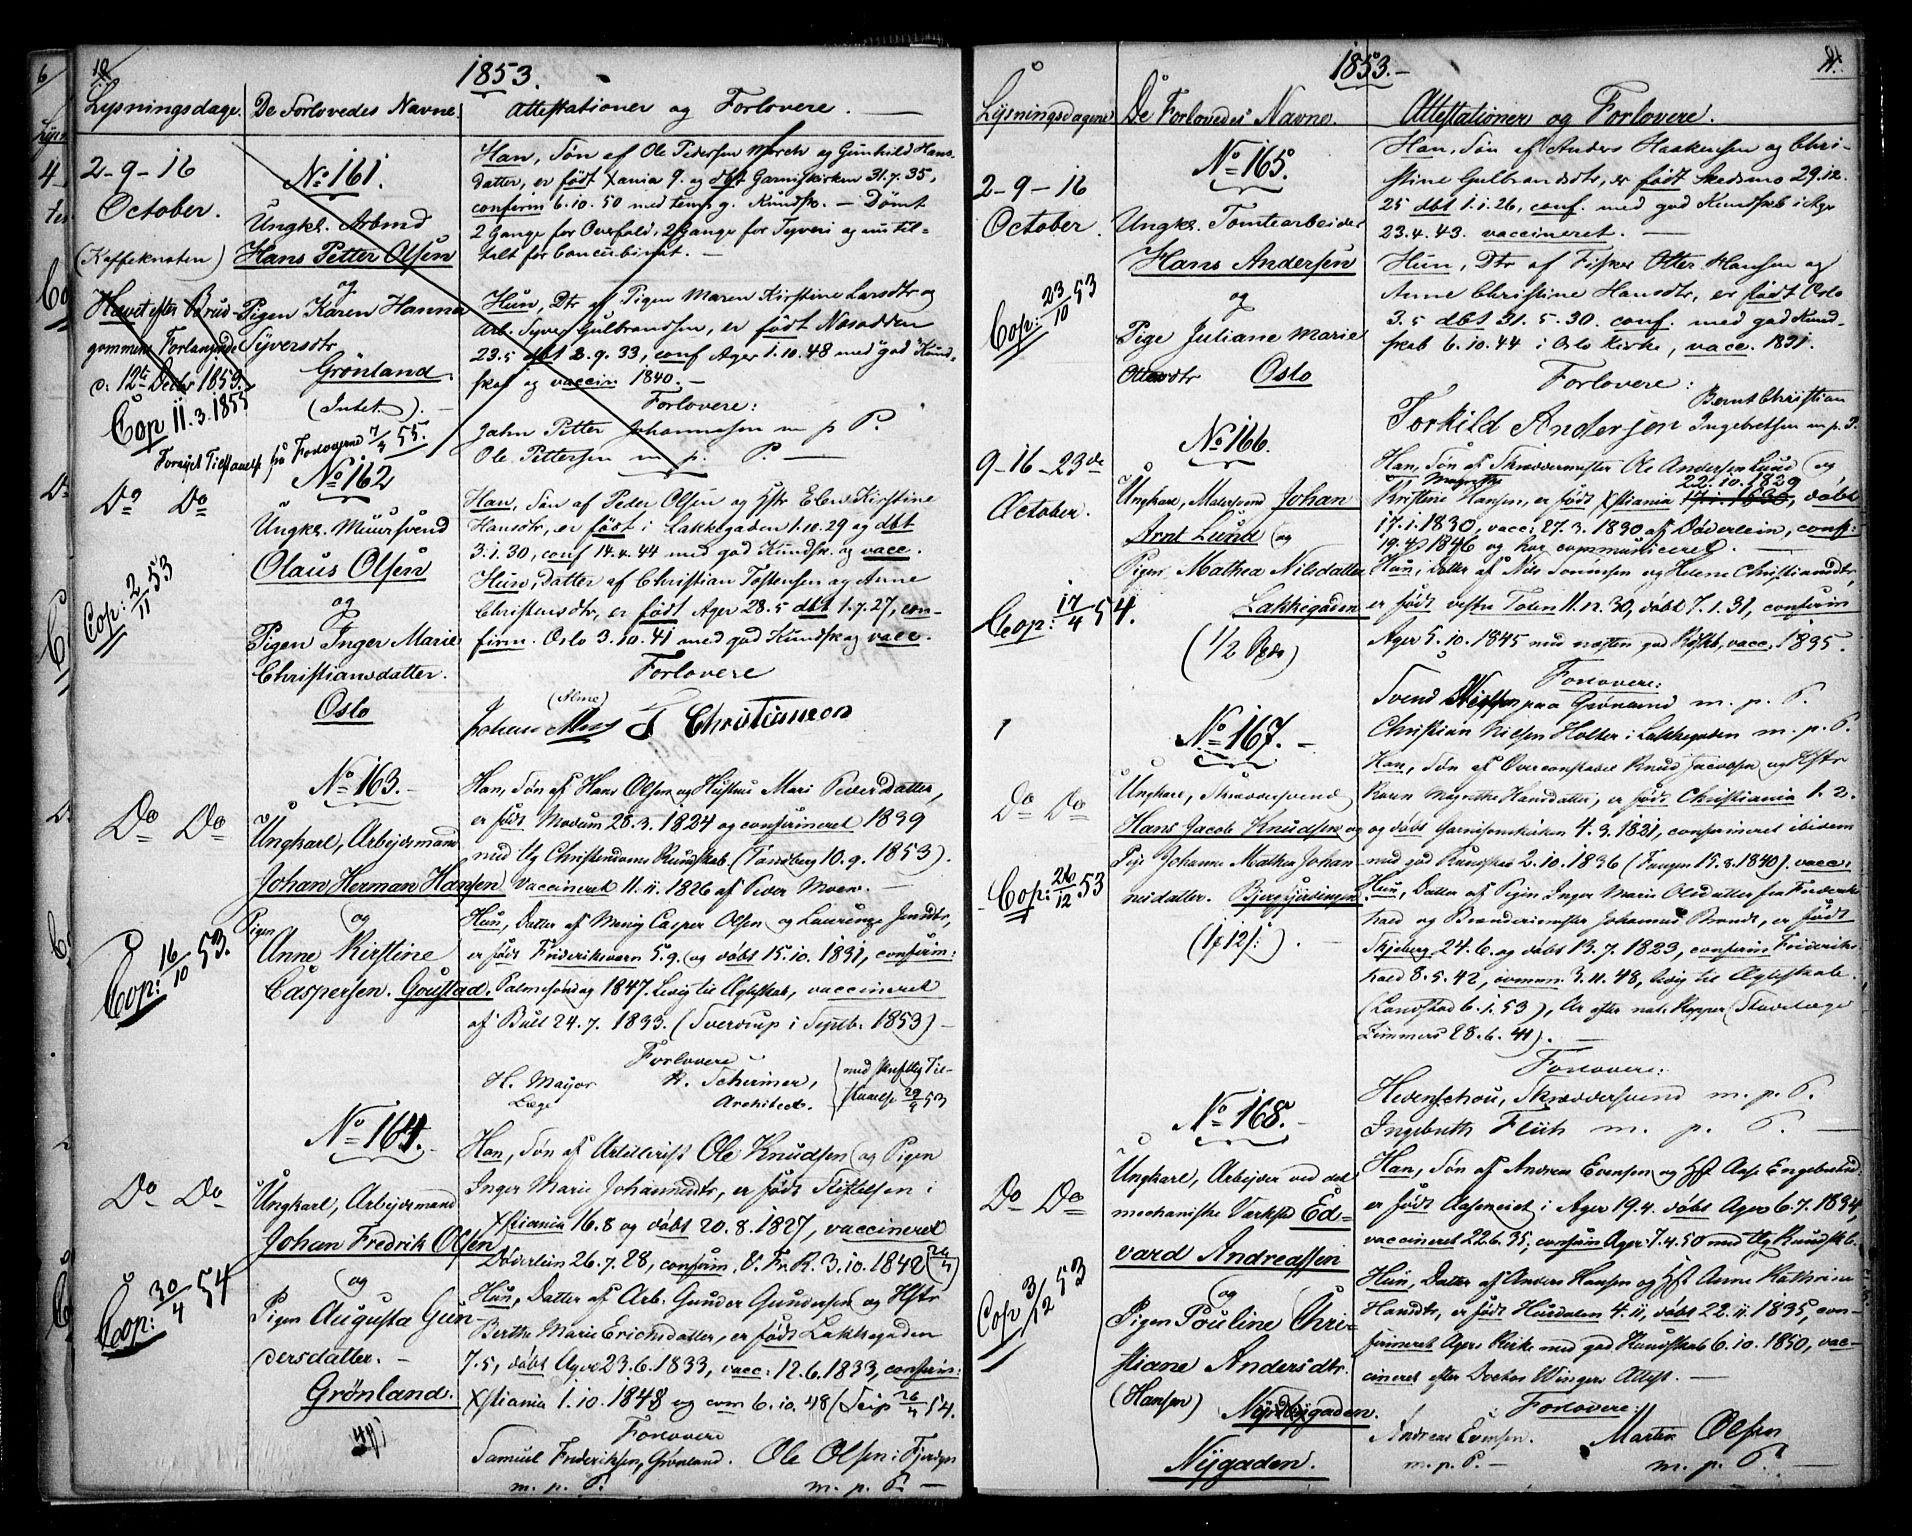 1853.
Lysningsdage. De Forlovedes Navne. Attestationer og Forlovere.
2-9-16
October.
(Kaffeknaten)
Hævet efter Brud-
gommens Forlangende
d: 12te Decbr 1853.
Cop 11.3.1855
Fornyet Tilstaaelse fra Forloverne 7/3 55.
No 161.
Ungkl. Arbmd
Hans Petter Olsen
og
Pigen Karen Hanna
Syversdtr
Grönland.
(Intet).
Han, Søn af Ole Pedersen Morch og Gunhild Hans-
datter, er født Xania 9. og døbt Garniskirken 31.7.35,
confirm 6.10.50 med temg. Kundsk. — Dömt
2 Gange for Overfald, 2 Gange for Tyveri og nu til-
talt for Concubinat. —
Hun, Dtr af Pigen Maren Kirstine Larsdtr og
Arb. Syver Gulbrandsen, er født Næsodden
23.5 døbt 2.9.33, conf Ager 1.10.48 med god Kund-
skab og vaccin 1840. —
Forlovere:
John Petter Johannesen m p P.
Ole Pettersen m. p. P. —
Do Do
Cop: 2/11 53
No 162
Ungkl. Muursvend
Olaus Olsen
og
Pigen Inger Marie
Christiansdatter.
Oslo
Han, Søn af Peder Olsen og Hstr Elen Kirstine
Hansdtr, er født i Lakkegaden 1.10.29 og døbt
3.1.30, conf 14.4.44 med god Kundsk. og vacc.
Hun, datter af Christian Tostensen og Anne
Christensdtr, er født Ager 28.5 døbt 1.7.27, con-
firm. Oslo 3.10.41 med god Kundsk og vacc.
Forlovere
T Christiansen
Do Do
Cop: 16/10 53.
No 163.
Ungkarl, Arbejdsmand
Johan Herman Hansen
Pigen og
Anne Kirstine
Caspersen. Goustad.
Han, Søn af Hans Olsen og Hustru Mari Pedersdatter,
er født Modum 28.3.1824 og confirmeret 1839
med Ug Christendoms Kundskab (Tandberg 10.9.1853).
vaccineret 11.11.1826 af Peder Moen. —
Hun, Datter af Casper Olsen og Laurenze Jensdtr,
er født Frideriksværn 5.9. og døbt 15.10.1831, confirm:
Palmesöndag 1847. Ledig til Ægteskab, vaccineret
af Bull 24.7.1833. (Sverdrup i Septb. 1853) —
Forlovere
H. Major
Læge
H. Schirmer,
Architect.
med skriftlig Til-
staaelse 29/9 53
Do Do
Cop: 30/4 54
No 164.
Ungkarl, Arbejdsmand
Johan Fredrik Olsen
og
Pigen Augusta Gun-
dersdatter. —
Grönland.
Han, Søn af Artillerist Ole Knudsen og Pigen
Inger Marie Johannesdtr, er født Stiftelsen i
Xstiania 16.8 og døbt 20.8.1827, vaccineret
Døderlein 26.7.28, confirm. V. Fr. K. 3.10.1842
Hun, Datter af Arb. Gunder Gundersen og Hstr
Berthe Marie Ericksdatter, er født Lakkegaden
7.5, døbt Ager 23.6.1833, vacc: 12.6.1833, confirm:
Xstiania 1.10.1848 og com 6.10.48 (Seip 26/4 54.
Forlovere
Samuel Frederiksen, Grönland. Ole Olsen i Fjerdingen
m. p. P. m. p. P. —
1853. —
Lysningsdagene De Forlovedes Navne. Attestationer og Forlovere.
2-9-16
October.
Cop: 23/10 53
No 165.
Ungkl. Tomtearbeider
Hans Andersen
og
Pige Juliane Marie
Ottersdtr Oslo
Han, Søn af Anders Haakensen og Chri-
stine Gulbrandsdtr, er født Skedsmo 29.12.
25 døbt 1.1.26, conf. med god Kundskab
23.4.43. vaccineret. —
Hun, Dtr af Fisker Otter Hansen og
Anne Christine Hansdtr, er født Oslo
3.5 døbt 31.5.30. conf. med god Kund-
skab 6.10.44 i Oslo Kirke, vacc. 1831.
Forlovere:
Torkild Andersen Bernt Christian
Ingebretsen m.p.P.
9-16-23de
October.
Cop: 17/4 54.
No 166.
Ungkarl, Malersvend Johan
Arnt Lund og
Pigen Mathea Nilsdatter
Lakkegaden
(1/2 Rdr)
Han, Søn af Skræddermester Ole Andersen Lund og
Kirstine Margrethe Hansen, er født Xstiania 22.10.1829, døbt
17.1.1830, vacc: 27.3.1830 af Döderlein, conf:
19.4.1846 og har communiceret. —
Hun, Datter af Nils Tonnesen og Helene Christiansdtr,
er født vestre Toten 11.12.30, døbt 7.1.31, confirm
Ager 5.10.1845 med næsten god Kdsk, vacc. 1835.
Forlovere:
Svend Nielsen paa Grönland m. p. P.
Christian Nilsen Holter i Lakkegaden m. p. P.
1
Do Do
Cop: 26/12 53
No 167. —
Ungkarl, Skræddersvend
Hans Jacob Knudsen og
Pige Johanne Mathea Johan-
nesdatter. Bjergfjerdingen.
(1 12)
Han, Søn af Overconstabel Knud Jacobsen og Hstr
Karen Magrethe Hansdatter, er født Christiania 1.2.
og døbt Garnisonskirken 4.3.1821, confirmeret ibidem
med god Kundskab 2.10.1836 (Fangen 15.8.1840). vacc:
Hun, Datter af Pigen Inger Marie Olsdatter fra Friderks-
hald og Brænderimester Johannes Brandt, er født
Skjeberg 24.6. og døbt 13.7.1823, confirm Frideriks-
hald 8.5.42, comm. 3.11.48, ledig til Ægteskab.
(Landstad 6.1.53), Ar efter nat. Kopper (Stadslæge
Zimmers 28.6.41). —
Forlovere:
Hedenschou, Skræddersvend m. p. P.
m. p. P. —
Do Do
Cop 3/12 53
No 168. —
Ungkarl, Arbejder ved det
mechaniske Værksted Ed-
vard Andreassen
og
Pigen Pouline Chri-
stiane Andersdtr.
(Hansen)
Nygaden.
Han, Søn af Andreas Evensen og Hst Aase Engebretsd:
er født Aaseneiet i Ager 19.4. døbt Ager 6.7.1834,
vaccineret 22.6.35, confirm Ager 7.4.50 med Ug Kundskb.
Hun, Datter af Anders Hansen og Hst Anne Kathrine
Hansdtr, er født Hurdalen 4.11, døbt 22.11.1835, con-
firmeret Agers Kirke med god Kundskab 6.10.1850, vac-
cineret efter Doctor Wingers Attest. —
Forlovere:
Andreas Evensen. Martin Olsen
m. p. P. m. p. P.